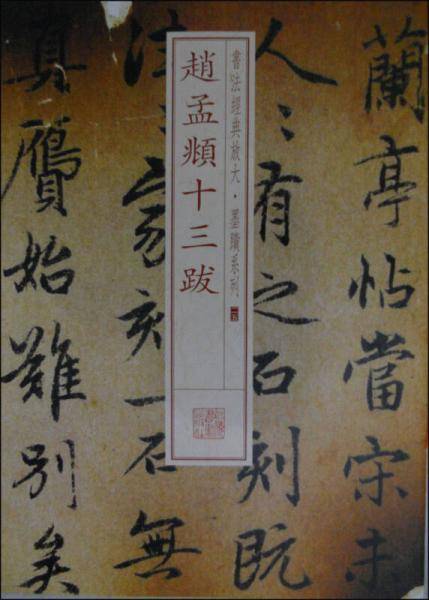 蘭亭帖當宋未
人〻有之石刻既
書法經典放大·墨蹟系列 一五
趙孟頫十三跋
往〻家刻一石無
真贋始難別矣